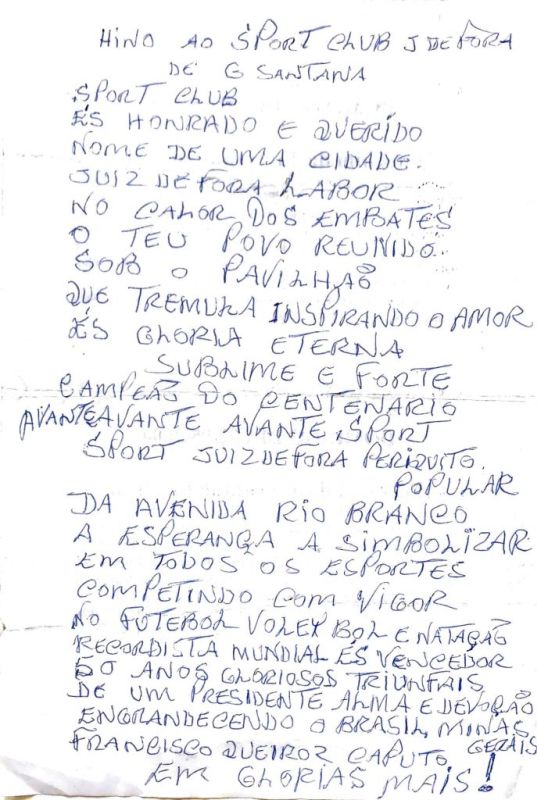 HINO AO SPORT CLUB J DE FORA
DE G SANTANA
SPORT CLUB
ÉS HONRADO E QUERIDO
NOME DE UMA CIDADE.
JUIZ DE FORA LABOR
NO CALOR DOS EMBATES
O TEU POVO REUNIDO.
SOB O PAVILHÃO
QUE TREMULA INSPIRANDO O AMOR
ÉS GLORIA ETERNA
SUBLIME E FORTE
CAMPEÃO DO CENTENARIO
AVANTE AVANTE AVANTE SPORT
SPORT JUIZ DE FORA PERIQUITO.
POPULAR
DA AVENIDA RIO BRANCO
A ESPERANÇA A SIMBOLIZAR
EM TODOS OS ESPORTES
COMPETINDO COM VIGOR
NO FUTEBOL VOLEY BOL E NATAÇÃO
RECORDISTA MUNDIAL ÉS VENCEDOR
50 ANOS GLORIOSOS TRIUNFAIS
DE UM PRESIDENTE ALMA E DEVOÇÃO
ENGRANDECENDO O BRASIL, MINAS
GERAIS
FRANCISCO QUEIROZ CAPUTO
EM GLORIAS MAIS!